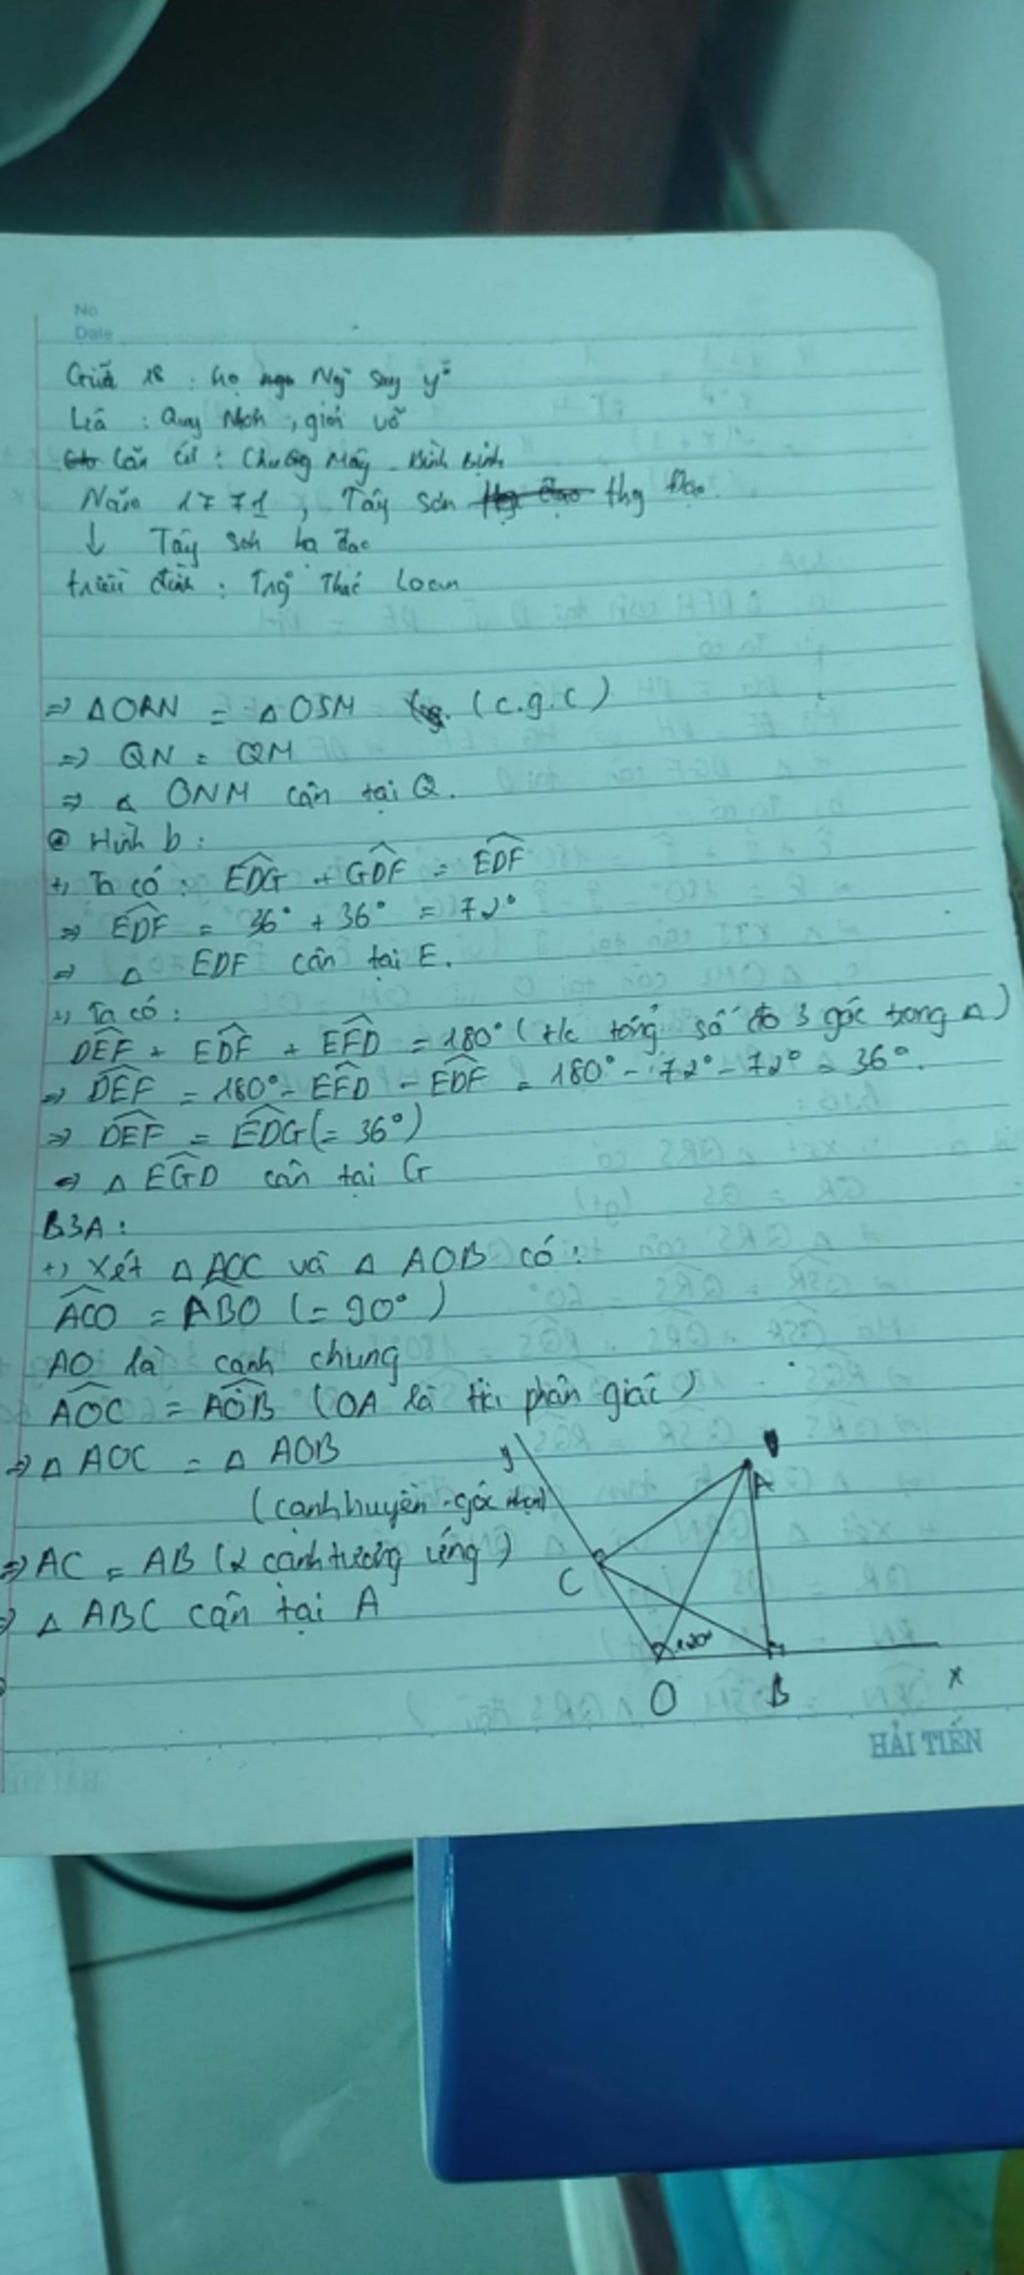 No
Date
Giữa 18 : họ Ng suy y
: Quy Nhơn , giỏi võ
căn cứ : Chương Mây - Bình Định
Năm 1771 , Tây Sơn thg Đạo
↓ Tây Sơn hạ đạo
triều đình : Trg Thúc Loan
=> ΔQRN = ΔQSM (c.g.c)
=> QN = QM
=> Δ QNM cân tại Q.
Hình b :
+, Ta có : EDG + GDF = EDF
=> EDF = 36° + 36° = 72°
=> Δ EDF cân tại E.
+, Ta có :
DEF + EDF + EFD = 180° (t/c tổng số đo 3 góc trong Δ)
=> DEF = 180° - EFD - EDF = 180° - 72° - 72° = 36°.
=> DEF = EDG (= 36°)
=> Δ EGD cân tại G
B3A :
+) Xét Δ AOC và Δ AOB có :
ACO = ABO (= 90°)
AO là cạnh chung
AOC = AOB (OA là tia phân giác)
=> Δ AOC = Δ AOB
(cạnh huyền - góc nhọn)
=> AC = AB (2 cạnh tương ứng)
=> Δ ABC cân tại A
y
A
C
120°
O B x
HẢI TIẾN